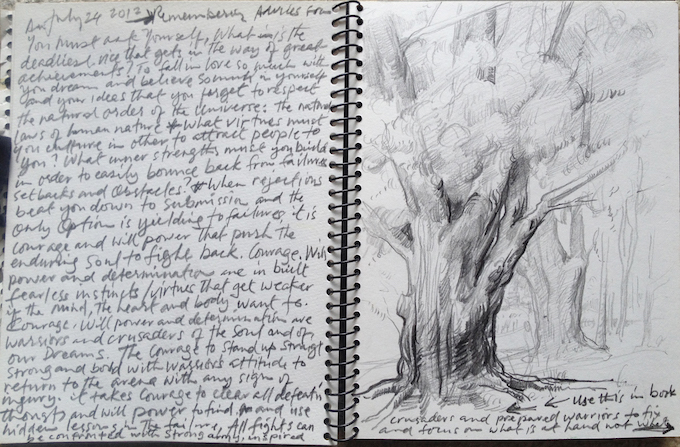 July 24 2012 Remembering Advices From
You Must ask Yourself, What is the
deadliest vice that gets in the way of great
achievements? To fall in love so much with
you dream and believe so much in yourself
and your ideas that you forget to respect
the natural order of the Universe: the natural
laws of human nature * What virtues must
you culture in other to attract people to
you? What inner strengths must you build
in order to easily bounce back from failures
setbacks and obstacles? * When rejections
beat you down to submission and the
only option is yielding to failures, it is
courage and will power that push the
enduring soul to fight back. Courage, Will
power and determination are in built
fearless instincts/virtues that get weaker
if the mind, the heart and body want to.
Courage, will power and determination are
warriors and crusaders of the soul and of
our Dreams. The courage to stand up straight
strong and bold with warriors attitude to
return to the arena with any sign of
injury. it takes courage to clear all
thoughts and will power to find and use
hidden lessons in the failure. All fights can
be confronted with strong inspired
← Use this in book
crusaders and prepared warriors to fix
and focus on what is at hand not